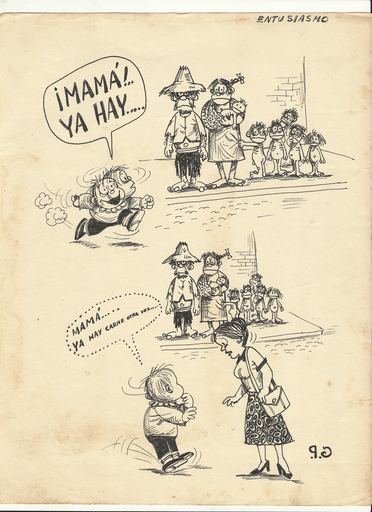 ENTUSIASMO
¡MAMÁ!..
YA HAY.....
MAMÁ.....
YA HAY CARNE OTRA VEZ....
G.P.